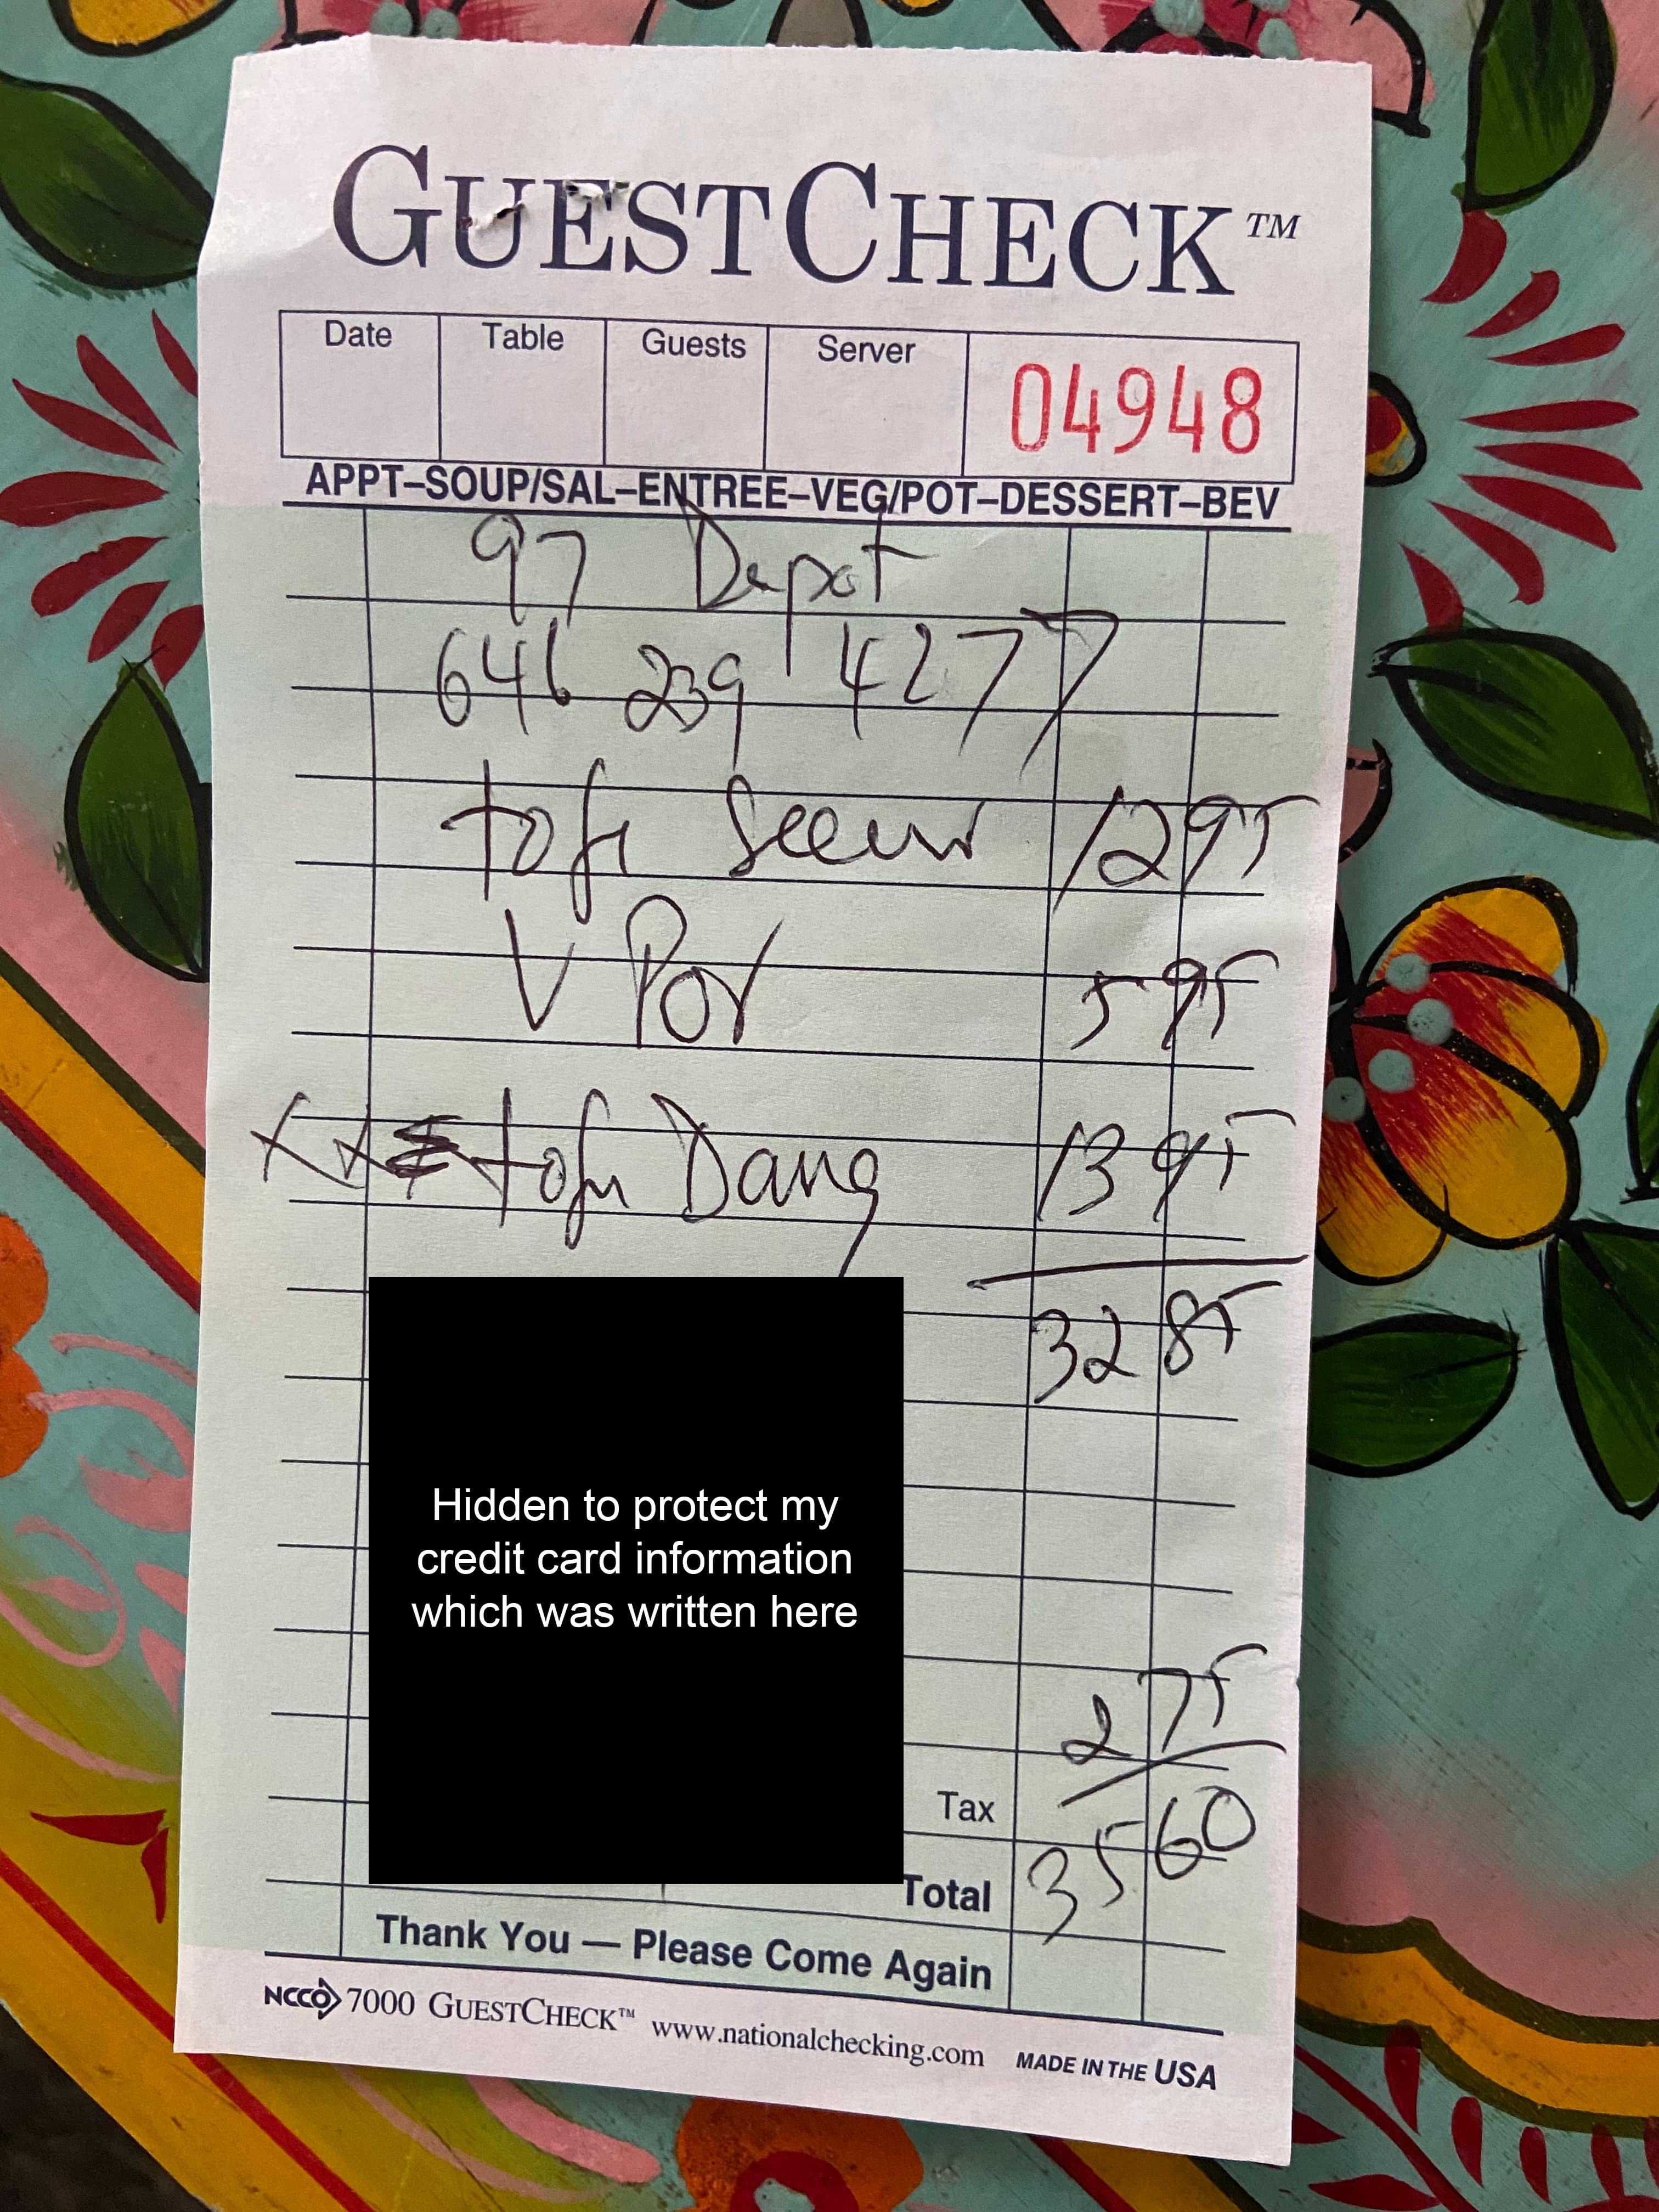 GUESTCHECK™
Date Table Guests Server 04948
APPT–SOUP/SAL–ENTREE–VEG/POT–DESSERT–BEV
97 Depot
646 239 4277
tofu 12 95
V Por 5 95
tofu Dang 13 95
32 85
Hidden to protect my
credit card information
which was written here
2 75
Tax
Total 35 60
Thank You — Please Come Again
NCCO 7000 GUESTCHECK™ www.nationalchecking.com MADE IN THE USA